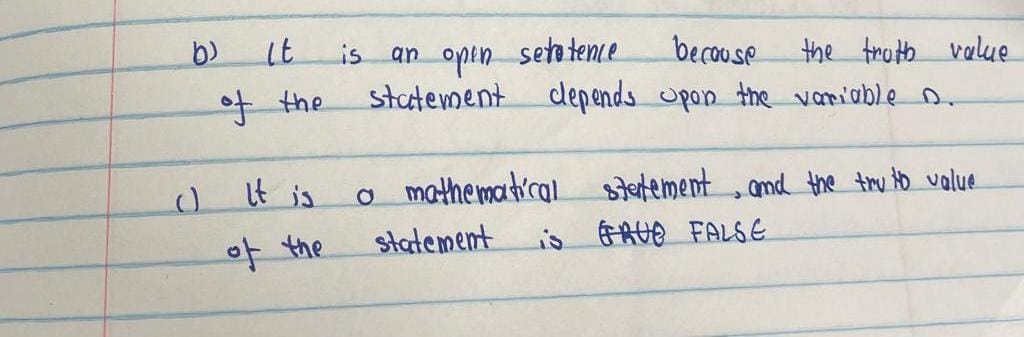 b) It is an open setetence because the truth value
of the statement depends upon the variable n.
c) It is a mathematical statement, and the truth value
of the statement is TRUE FALSE